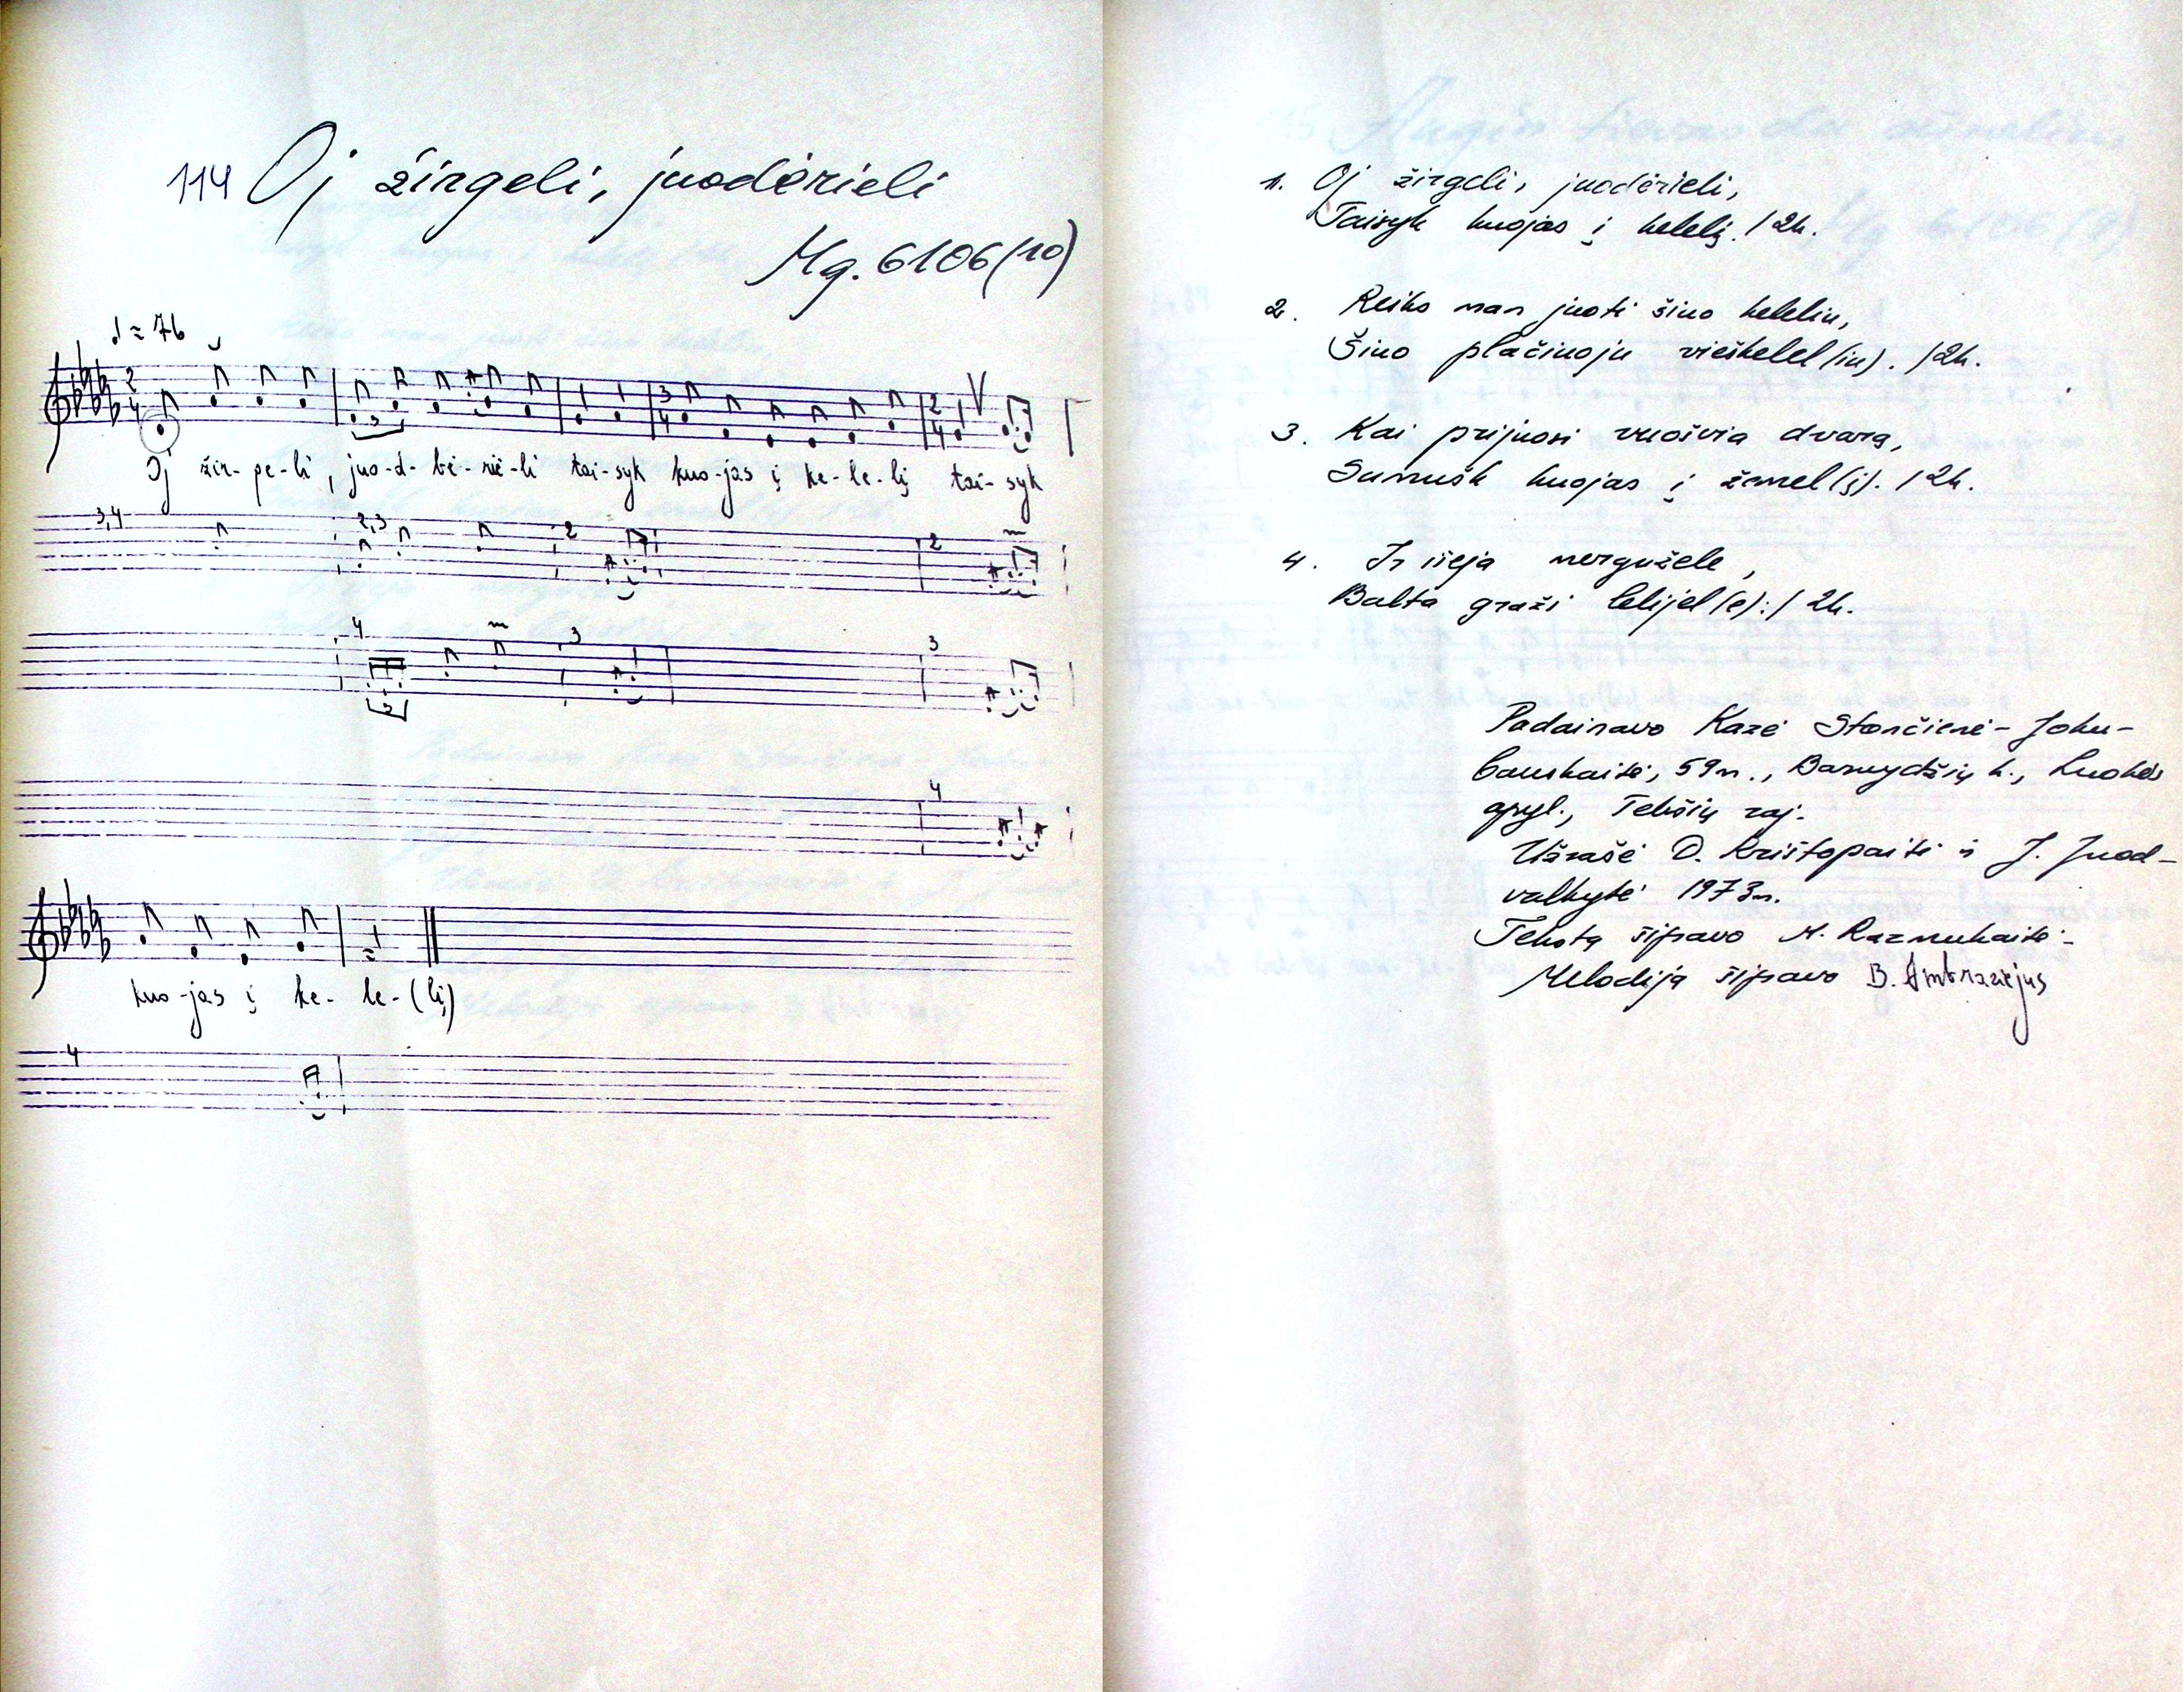 114 Oj žirgeli, juodėrieli
Mg. 6106(10)
♩ = 76
Oj žir-ge-li, juo-d-bė-rie-li tai-syk kuo-jas į ke-le-lį tai-syk
3,4 2,3 2 2
4 3 3
4
kuo-jas į ke-le-(lį)
4
1. Oj žirgeli, juodėrieli,
Taisyk kuojas į kelelį. / 2k.
2. Reiks man juoti šiuo keleliu,
Šiuo plačiuoju vieškelel(iu). / 2k.
3. Kai prijuosi vuošvia dvarą,
Sumušk kuojas į žemel(į). / 2k.
4. Ir išeja mergužele,
Balta graži lelijel(e): / 2k.
Padainavo Kazė Stončienė-Joku-
bauskaitė, 59 m., Barvydžių k., Luokės
apyl., Telšių raj.
Užrašė D. Krištopaitė ir J. Juod-
valkytė 1973 m.
Tekstą šifravo M. Razmukaitė
Melodiją šifravo B. Ambraziejus